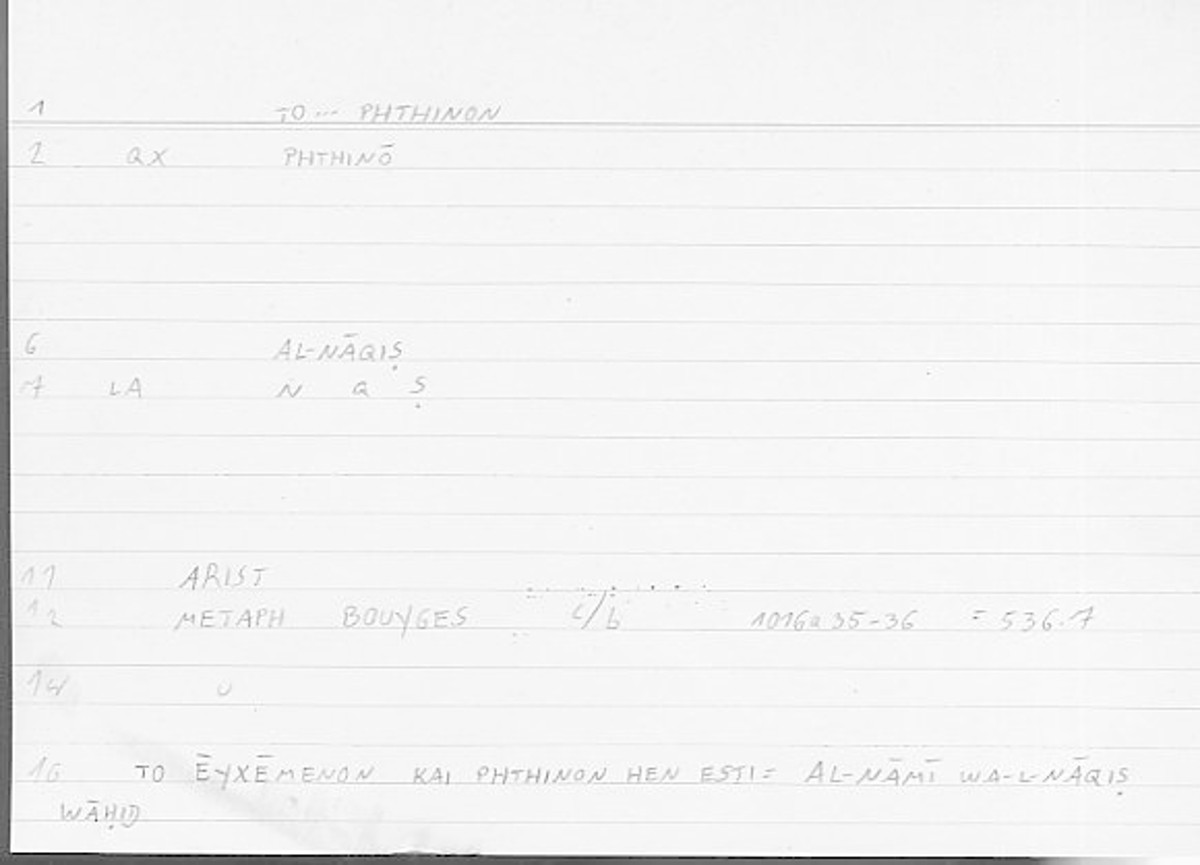 1 TO ... PHTHINON
2 QX PHTHINŌ
6 AL-NĀQIṢ
7 LA N Q Ṣ
11 ARIST
12 METAPH BOUYGES c/b 1016a35-36 = 536.7
14 U
16 TO ĒYXĒMENON KAI PHTHINON HEN ESTI = AL-NĀMĪ WA-L-NĀQIṢ
WĀḤID